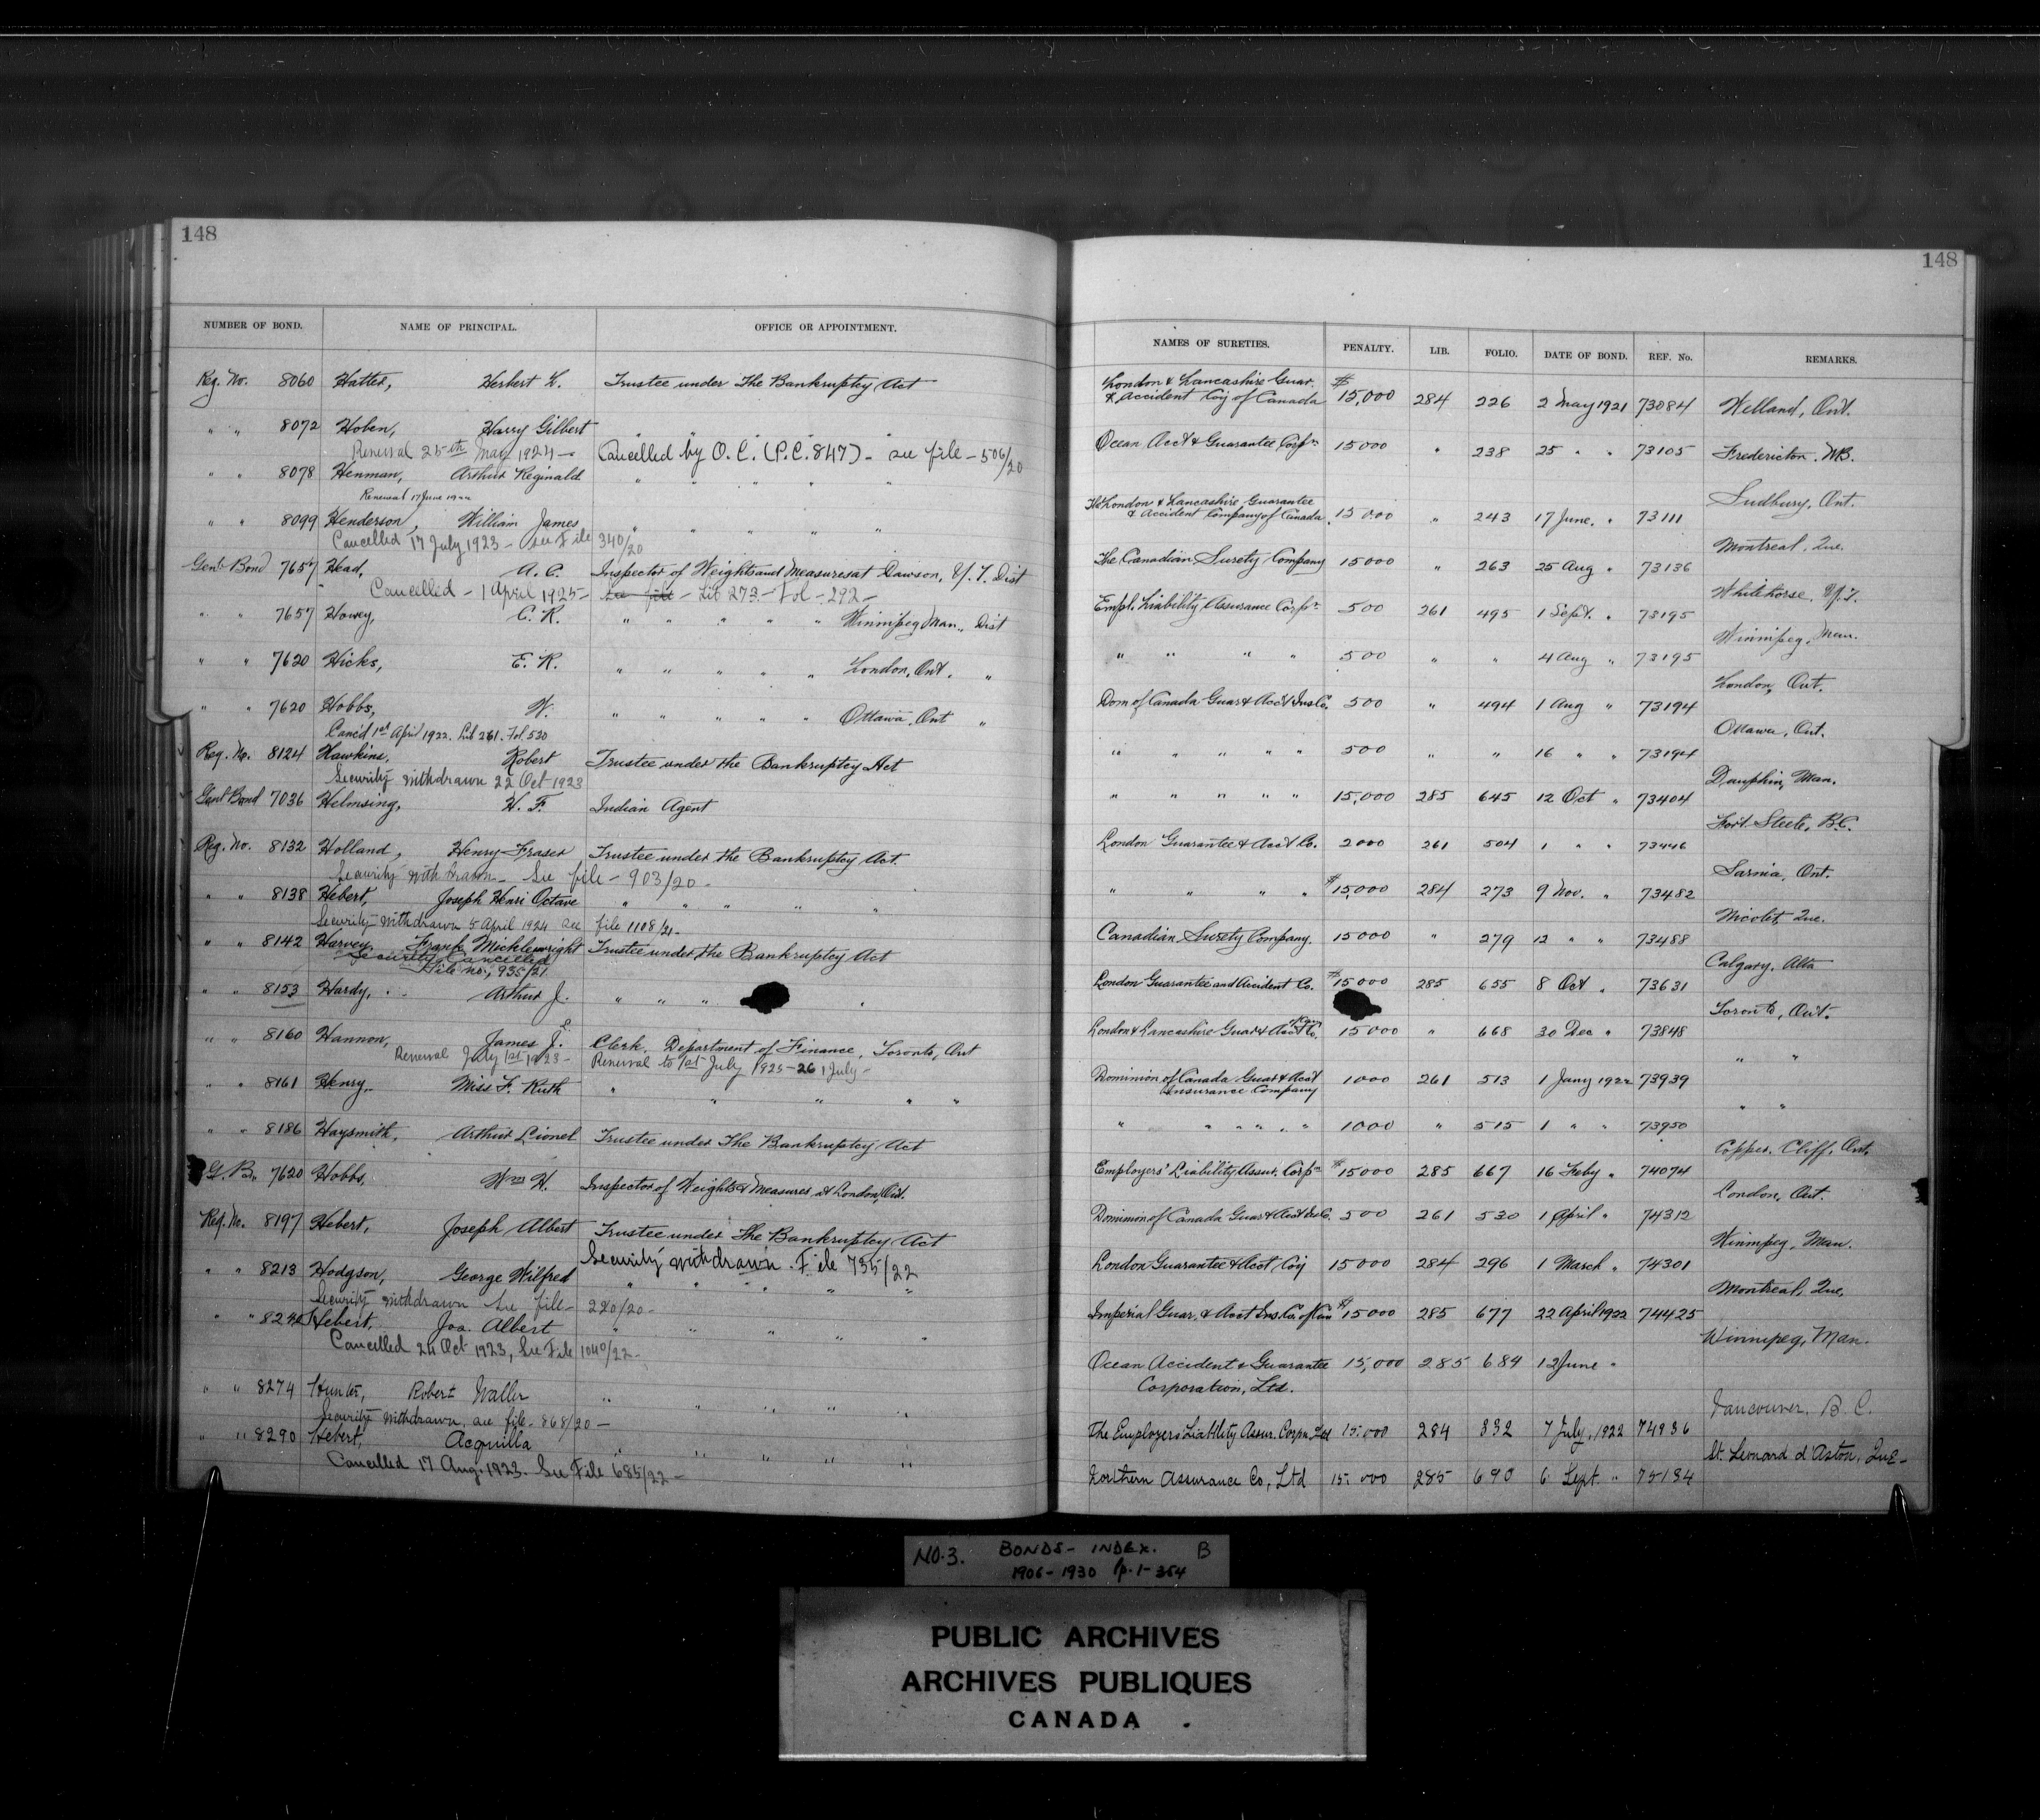 148
NUMBER OF BOND. NAME OF PRINCIPAL. OFFICE OR APPOINTMENT.
Reg. No. 8060 Hatter, Herbert L. Trustee under The Bankruptcy Act
" " 8072 Hoben, Harry Gilbert " " " " "
Renewal 25th May 1924 — Cancelled by O.C. (P.C. 847) - see file - 506/20
" " 8078 Henman, Arthur Reginald " " " " "
Renewal 17 June 1922
" " 8099 Henderson, William James " " " " "
Cancelled 17 July 1923 - see File 340/20
Genl Bond 7657 Head, A. C. Inspector of Weights and Measures at Dawson, Y. T. Dist
Cancelled - 1 April 1925 - see file - Lib 273 - Fol - 292 -
" " 7657 Howey, C. R. " " " " " Winnipeg Man., Dist
" " 7620 Hicks, E. R. " " " " " London, Ont. "
" " 7620 Hobbs, W. " " " " " Ottawa, Ont "
Canc'd 1st April 1922. Lib 261. Fol 530
Reg. No. 8124 Hawkins, Robert Trustee under the Bankruptcy Act
Security withdrawn 22 Oct 1923
Genl Bond 7036 Helmsing, H. F. Indian Agent
Reg. No. 8132 Holland, Henry Fraser Trustee under the Bankruptcy Act.
Security withdrawn - See file - 903/20 -
" " 8138 Hebert, Joseph Henri Octave " " " " "
Security withdrawn 5 April 1924 see file 1108/21 -
" " 8142 Harvey, Frank Micklewright Trustee under the Bankruptcy Act
Security Cancelled
File no, 935/21
" " 8153 Hardy, Arthur J. " " " "
" " 8160 Hannon, James J. Clerk, Department of Finance, Toronto, Ont
Renewal July 1st 1923 - Renewal to 1st July 1925-26 1 July -
" " 8161 Henry, Miss F. Ruth " " " " "
" " 8186 Haysmith, Arthur Lionel Trustee under The Bankruptcy Act
G. B. 7620 Hobbs, Wm W. Inspector of Weights & Measures at London, Ont.
Reg. No. 8197 Hebert, Joseph Albert Trustee under The Bankruptcy Act
Security withdrawn. File 735/22
" " 8213 Hodgson, George Wilfred " " " " "
Security withdrawn see file - 220/20 -
" " 8240 Hebert, Jos. Albert " " " "
Cancelled 24 Oct 1923, See File 1040/22 -
" " 8274 Hunter, Robert Waller " " " " "
Security withdrawn, see file - 868/20 -
" " 8290 Hebert, Acquilla " " " " "
Cancelled 17 Aug. 1923. See File 685/22 -
148
NAMES OF SURETIES. PENALTY. LIB. FOLIO. DATE OF BOND. REF. No. REMARKS.
London & Lancashire Guar.
& Accident Coy of Canada $15,000 284 226 2 May 1921 73084 Welland, Ont.
Ocean Acc't & Guarantee Corpn 15000 " 238 25 " " 73105 Fredericton. NB.
The London & Lancashire Guarantee
& Accident Company of Canada. 15000 " 243 17 June. " 73111 Sudbury, Ont.
The Canadian Surety Company 15000 " 263 25 Aug " 73136 Montreal, Que.
Empl. Liability Assurance Corpn 500 261 495 1 Sept. " 73195 Whitehorse, Y.T.
" " " " 500 " " 4 Aug " 73195 Winnipeg, Man.
Dom of Canada Guar & Acc't Ins Co. 500 " 494 1 Aug " 73194 London, Ont.
" " " " " 500 " " 16 " " 73194 Ottawa, Ont.
" " " " " 15,000 285 645 12 Oct " 73404 Dauphin, Man.
London Guarantee & Acc't Co. 2000 261 504 1 " " 73446 Fort Steele, B.C.
" " " " $15,000 284 273 9 Nov. " 73482 Sarnia, Ont.
Canadian Surety Company. 15000 " 279 12 " " 73488 Nicolet, Que.
London Guarantee and Accident Co. $15000 285 655 8 Oct " 73631 Calgary, Alta
London & Lancashire Guar & Acc't Co. of Can 15000 " 668 30 Dec " 73848 Toronto, Ont.
Dominion of Canada Guar & Acc't
Insurance Company 1000 261 513 1 Jany 1922 73939 " "
" " " " " " 1000 " 515 1 " " 73950 " "
Employers' Liability Assur. Corpn $15000 285 667 16 Feby " 74074 Copper Cliff, Ont.
Dominion of Canada Guar & Acc't Ins Co. 500 261 530 1 April " 74312 London, Ont.
London Guarantee & Acct Coy 15000 284 296 1 March " 74301 Winnipeg, Man.
Imperial Guar. & Acct Ins. Co. of Can $15000 285 677 22 April 1922 74425 Montreal, Que,
Ocean Accident & Guarantee 15,000 285 684 12 June " Winnipeg, Man.
Corporation, Ltd.
The Employers Liability Assur. Corpn. Ltd 15,000 284 332 7 July, 1922 74936 Vancouver, B. C.
Northern Assurance Co, Ltd 15,000 285 690 6 Sept. " 75184 St. Leonard d'Aston, Que -
NO. 3. BONDS - INDEX. B
1906 - 1930 p. 1 - 354
PUBLIC ARCHIVES
ARCHIVES PUBLIQUES
CANADA